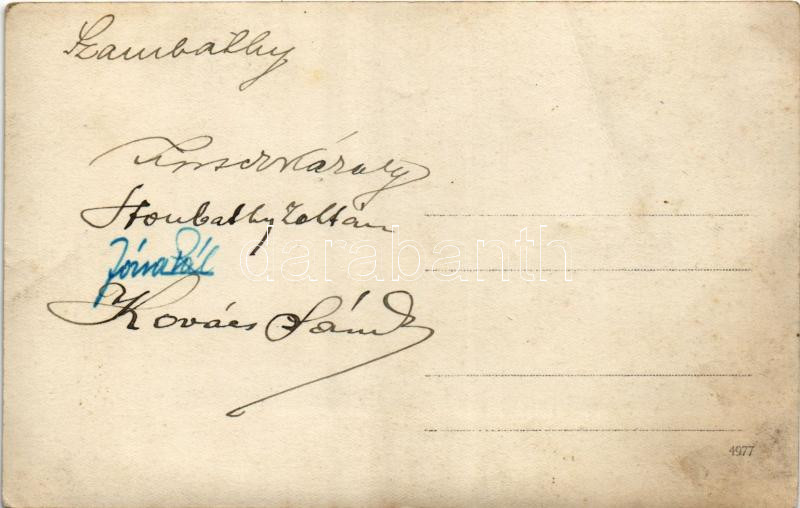 Szombathy
Károly
Szombathy Zoltán
Józsa Pál
Kovács Sánd
darabanth
4977